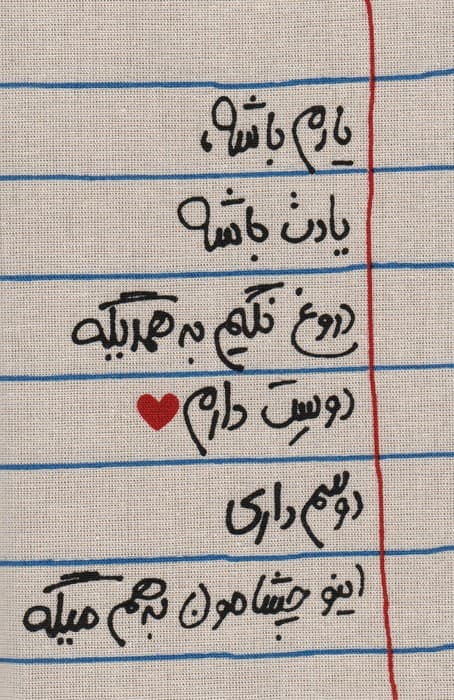 یارم باشه،
یادت باشه
دروغ نگیم به همدیگه
دوست دارم
دوسم داری
اینو چشامون به هم میگه